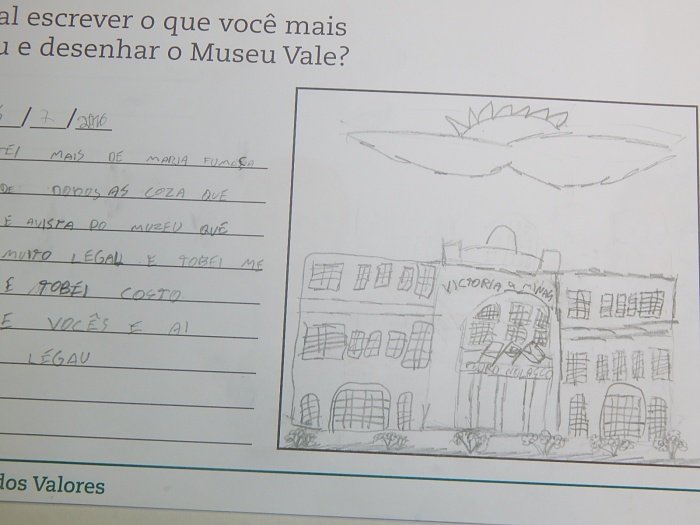 al escrever o que você mais
u e desenhar o Museu Vale?
/ 7 / 2016
EI MAIS DE MARIA FUMAÇA
DE DODOS AS COZA QUE
E AVISTA DO MUZEU QUE
MUITO LEGAU E TOBEI ME
E TOBEI COSTO
E VOCÊS E AI
LEGAU
VICTORIA a MINAS
dos Valores